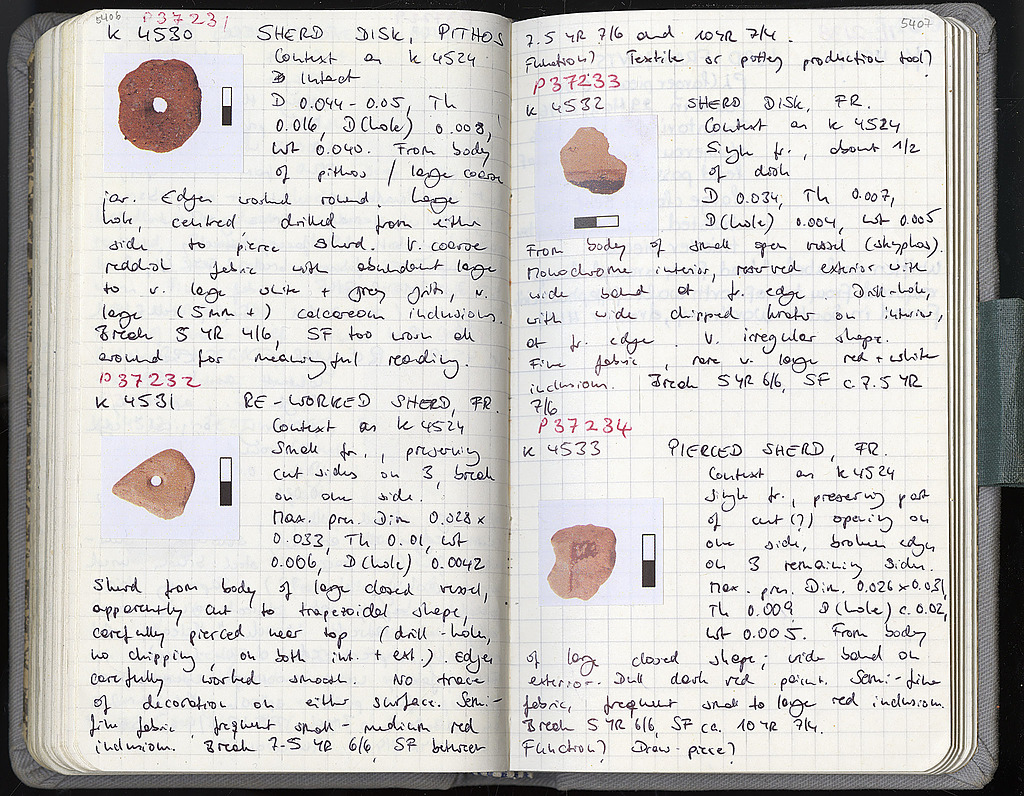 5406
P37231
K 4530 SHERD DISK, PITHOS
Context as K 4524
Intact
D 0.044-0.05, Th
0.016, D(hole) 0.008,
Wt 0.040. From body
of pithos / large coarse
jar. Edges worked round. Large
hole, centred, drilled from either
side to pierce sherd. V. coarse
reddish fabric with abundant large
to v. large white + grey grits, v.
large (5mm +) calcareous inclusions.
Break 5 YR 4/6, SF too worn all
around for meaningful reading.
P37232
K 4531 RE-WORKED SHERD, FR.
Context as K 4524
Small fr., preserving
cut sides on 3, break
on one side.
Max. pres. Dim 0.028 x
0.033, Th 0.01, Wt
0.006, D(hole) 0.0042
Sherd from body of large closed vessel,
apparently cut to trapezoidal shape,
carefully pierced near top (drill-hole,
no chipping, on both int. + ext.). Edges
carefully worked smooth. No trace
of decoration on either surface. Semi-
fine fabric, frequent small-medium red
inclusions. Break 7.5 YR 6/6, SF between
5407
7.5 YR 7/6 and 10YR 7/4.
Function? Textile or pottery production tool?
P37233
K 4532 SHERD DISK, FR.
Context as K 4524
Single fr., about 1/2
of disk
D 0.034, Th 0.007,
D(hole) 0.004, Wt 0.005
From body of small open vessel (skyphos).
Monochrome interior, reserved exterior with
wide band at fr. edge. Drill-hole,
with wide chipped krater on interior,
at fr. edge. V. irregular shape.
Fine fabric, rare v. large red + white
inclusions. Break 5 YR 6/6, SF c. 7.5 YR
7/6
P37234
K 4533 PIERCED SHERD, FR.
Context as K 4524
Single fr., preserving part
of cut(?) opening on
one side, broken edges
on 3 remaining sides.
Max. pres. Dim. 0.026 x 0.031,
Th 0.009 D(hole) c. 0.02,
Wt 0.005. From body
of large closed shape; wide band on
exterior. Dull dark red paint. Semi-fine
fabric, frequent small to large red inclusions.
Break 5 YR 6/6, SF ca. 10 YR 7/4.
Function? Draw-piece?